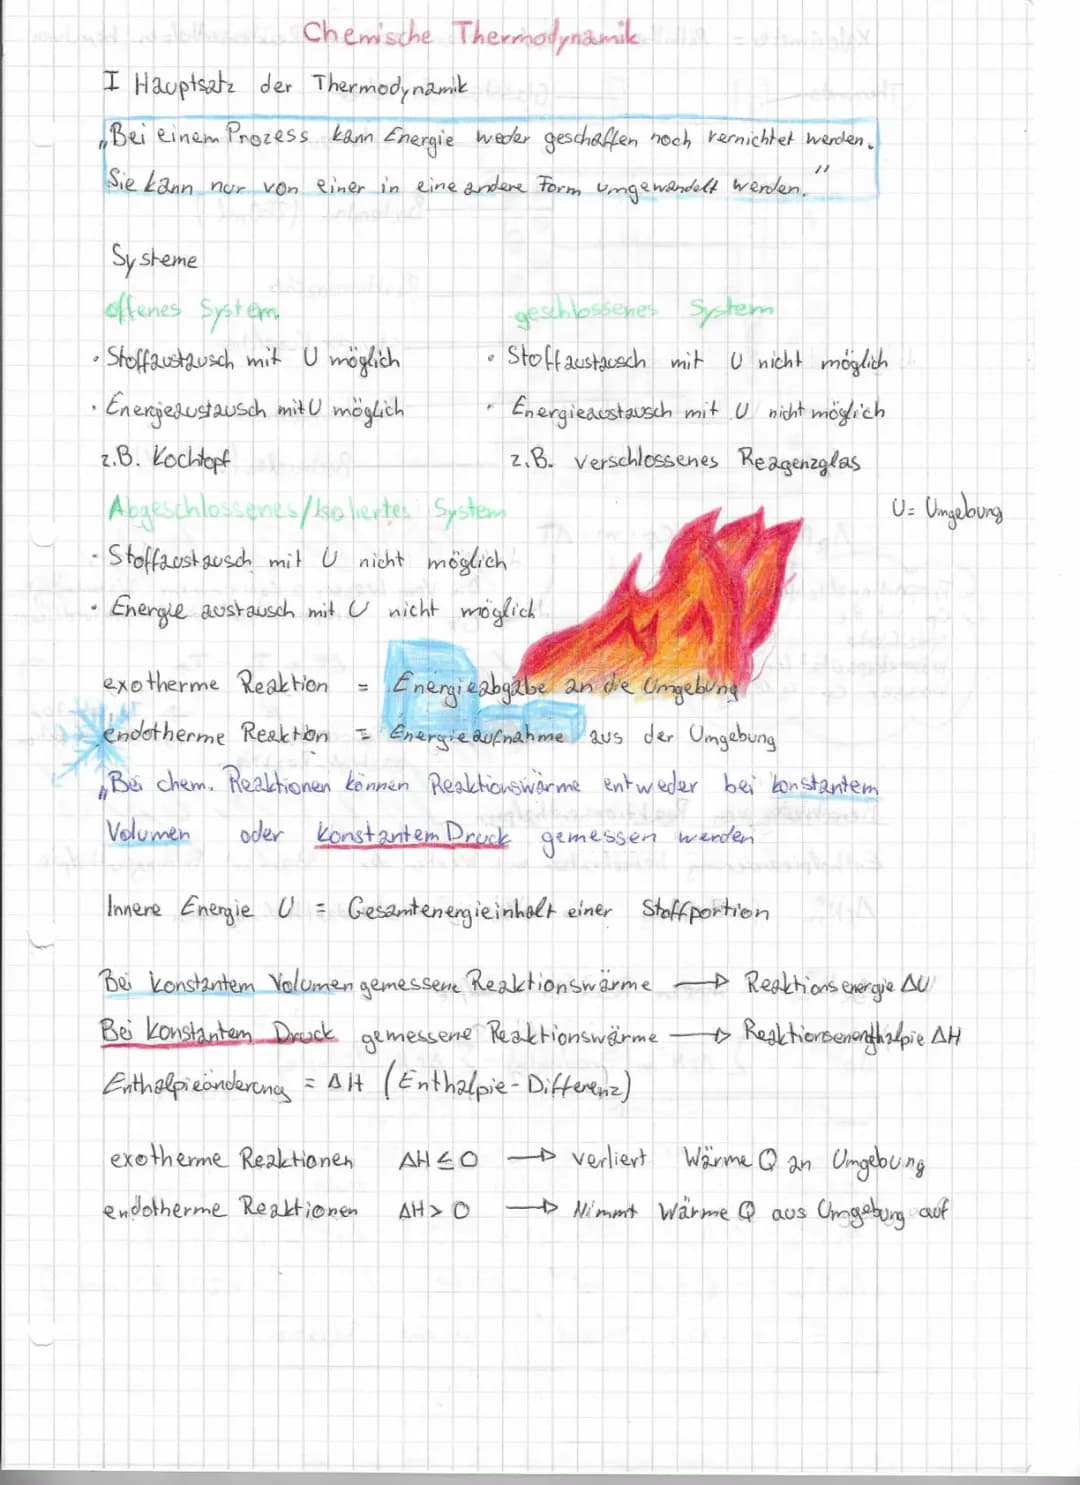 Chemische Thermodynamik
I Hauptsatz der Thermodynamik
„Bei einem Prozess kann Energie weder geschaffen noch vernichtet werden.
Sie kann nur von einer in eine andere Form umgewandelt werden."
Systeme
offenes System
• Stoffaustausch mit U möglich
• Energieaustausch mit U möglich
z.B. Kochtopf
geschlossenes System
• Stoffaustausch mit U nicht möglich
• Energieaustausch mit U nicht möglich
z.B. verschlossenes Reagenzglas
U = Umgebung
Abgeschlossenes/Isoliertes System
- Stoffaustausch mit U nicht möglich
• Energie austausch mit U nicht möglich
exotherme Reaktion = Energieabgabe an die Umgebung
endotherme Reaktion = Energieaufnahme aus der Umgebung
„Bei chem. Reaktionen können Reaktionswärme entweder bei konstantem
Volumen oder konstantem Druck gemessen werden
Innere Energie U = Gesamtenergieinhalt einer Stoffportion
Bei konstantem Volumen gemessene Reaktionswärme → Reaktionsenergie ΔU
Bei konstantem Druck gemessene Reaktionswärme → Reaktionsenenthalpie ΔH
Enthalpieänderung = ΔH (Enthalpie-Differenz)
exotherme Reaktionen ΔH ≤ 0 → verliert Wärme Q an Umgebung
endotherme Reaktionen ΔH > 0 → Nimmt Wärme Q aus Umgebung auf